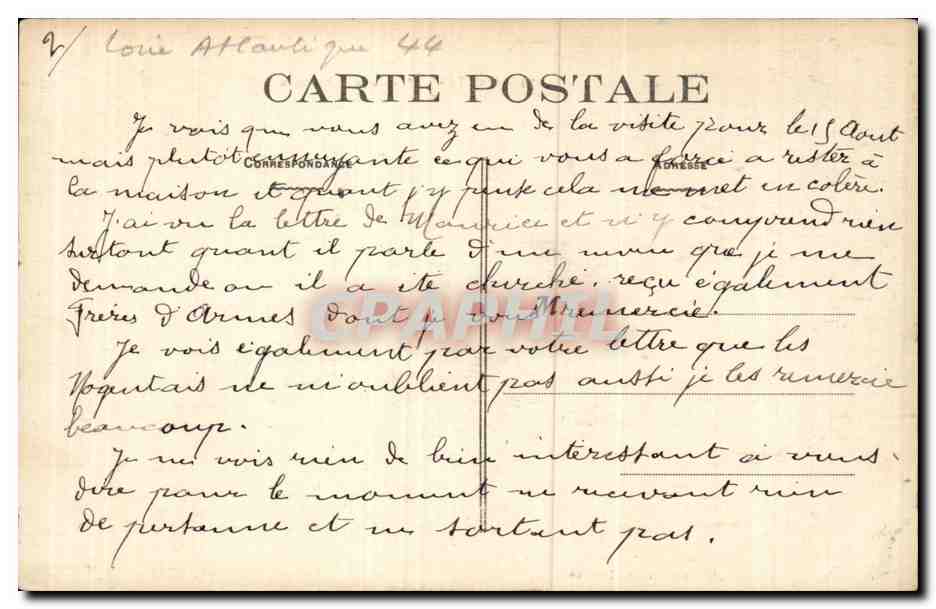 2/ Loire Atlantique 44
CARTE POSTALE
Je vois que vous avez eu de la visite pour le 15 Aout
CORRESPONDANCE
ADRESSE
mais plutôt ennuyante ce qui vous a forcé a rester à
la maison et quant j'y pense cela me met en colère.
J'ai vu la lettre de Maurice et n'y comprend rien
surtout quant il parle d'une que je me
demande ou il a ete cherché. reçu également
Frères d'Armes dont je vous remercie.
CPARAMA
Je vois également par votre lettre que les
Nogentais ne m'oublient pas aussi je les remercie
beaucoup.
Je ne vois rien de bien interessant a vous
dire pour le moment ne recevant rien
de personne et ne sortant pas.